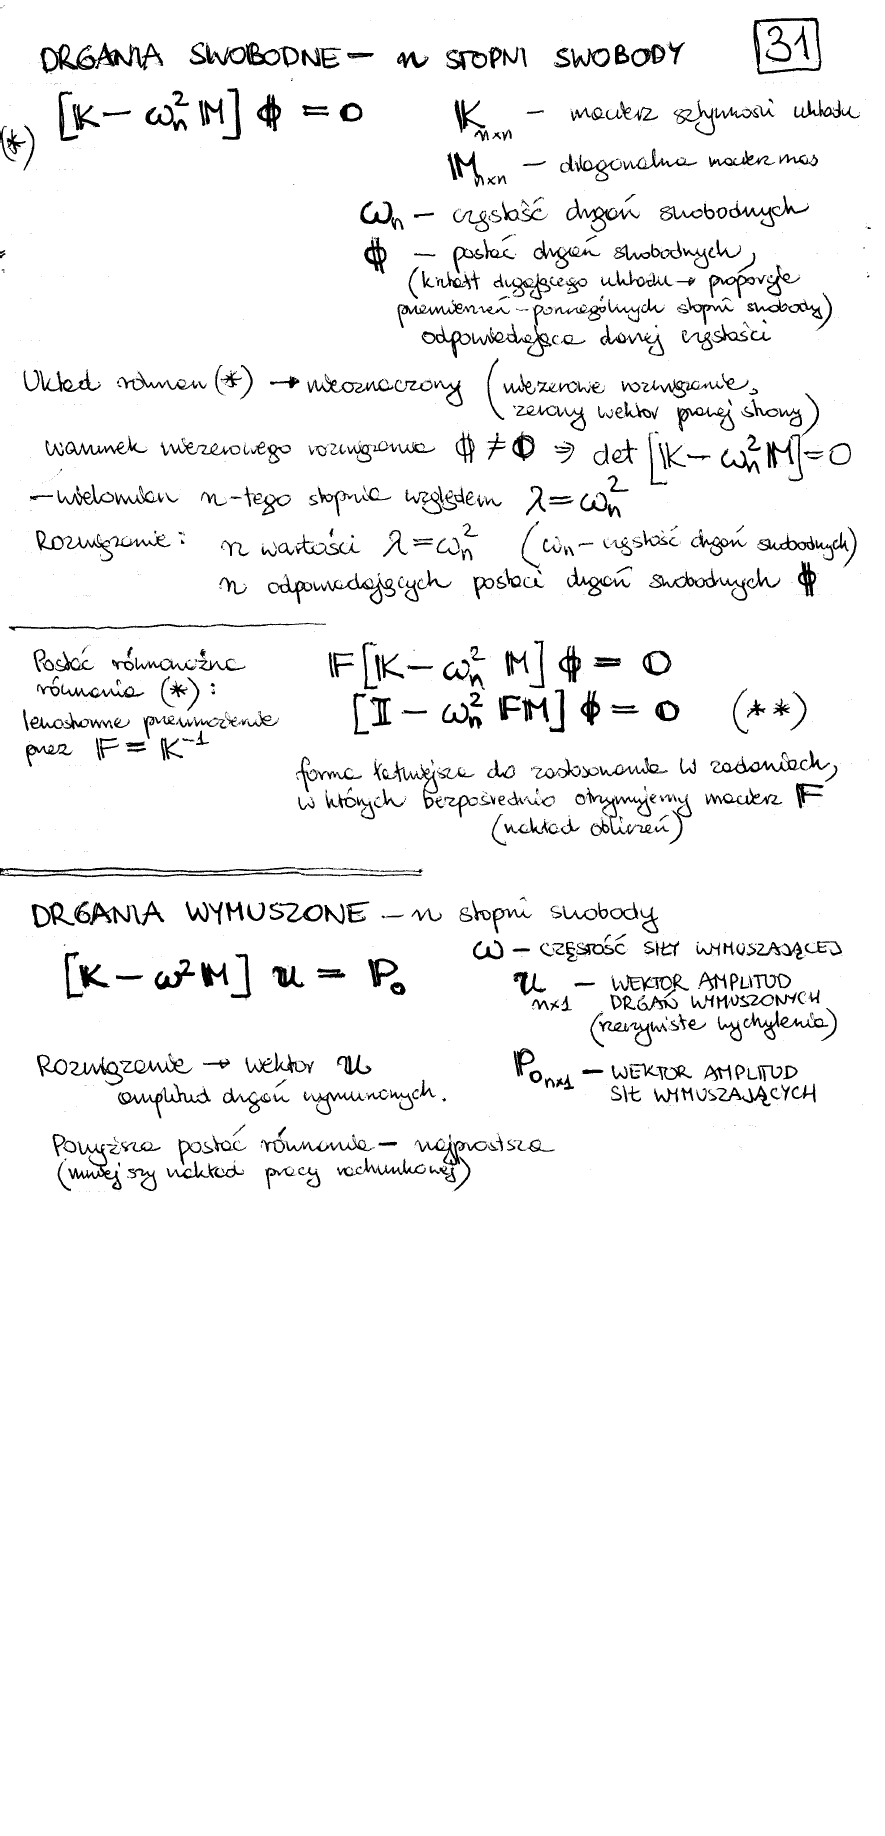 DRGANIA SWOBODNE – n STOPNI SWOBODY 31
(*) [K – ωn² M] ϕ = 0
K n×n – macierz sztywności układu
M n×n – diagonalna macierz mas
ωn – częstość drgań swobodnych
ϕ – postać drgań swobodnych,
(kształt drgającego układu → proporcje
przemieszczeń – poszczególnych stopni swobody)
odpowiadająca danej częstości
Układ równań (*) → nieoznaczony (niezerowe rozwiązanie,
zerowy wektor prawej strony)
warunek niezerowego rozwiązania ϕ ≠ 0 ⇒ det [K – ωn² M] = 0
– wielomian n-tego stopnia względem λ = ωn²
Rozwiązanie: n wartości λ = ωn² (ωn – częstość drgań swobodnych)
n odpowiadających postaci drgań swobodnych ϕ
Postać równoważna
równania (*):
lewostronne przemnożenie
przez F = K⁻¹
F [K – ωn² M] ϕ = 0
[I – ωn² FM] ϕ = 0 (**)
forma łatwiejsza do zastosowania w zadaniach,
w których bezpośrednio otrzymujemy macierz F
(nakład obliczeń)
DRGANIA WYMUSZONE – n stopni swobody
[K – ω² M] u = P₀
ω – CZĘSTOŚĆ SIŁY WYMUSZAJĄCEJ
u n×1 – WEKTOR AMPLITUD
DRGAŃ WYMUSZONYCH
(rzeczywiste wychylenia)
P₀ n×1 – WEKTOR AMPLITUD
SIŁ WYMUSZAJĄCYCH
Rozwiązanie → wektor u
amplitud drgań wymuszonych.
Powyższa postać równania – najprostsza
(mniejszy nakład pracy rachunkowej)